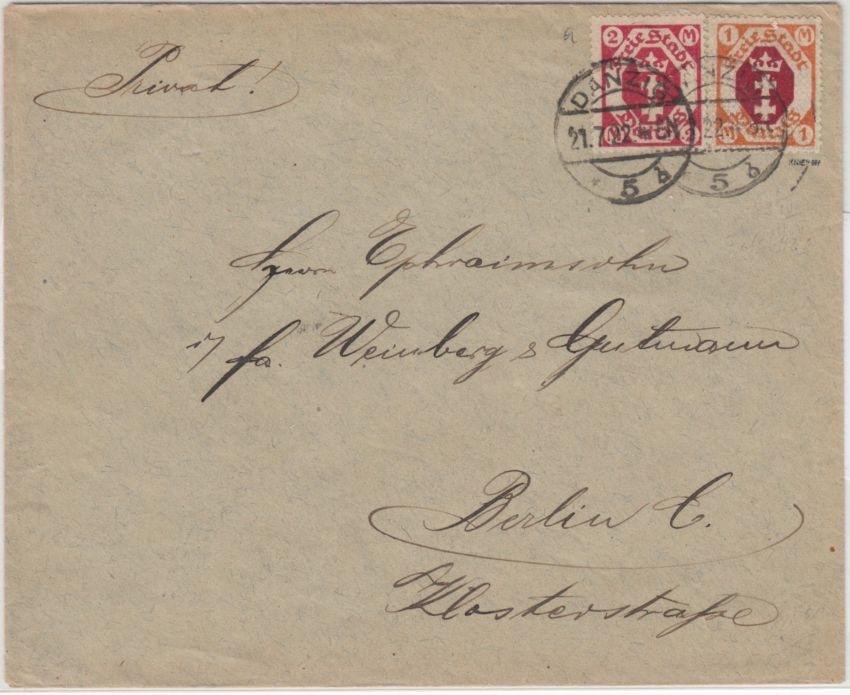 Privat!
2 M
Freie Stadt
Danzig
1 M
Freie Stadt
Danzig
1
DANZIG
21.7.22
5 b
5 b
Herrn Ephraimsohn
i/ fa. Weinberg & Gutmann
Berlin C.
Klosterstraße